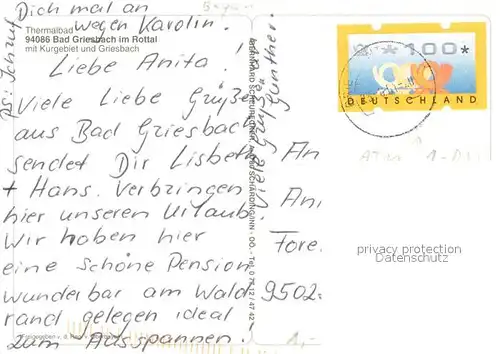 Dich mal an
wegen Karolin.
Thermalbad
94086 Bad Griesbach im Rottal
mit Kurgebiet und Griesbach
Liebe Anita!
Viele Liebe Grüße
aus Bad Griesbach
sendet Dir Lisbeth
+ Hans. Verbringen
hier unseren Urlaub.
Wir haben hier
eine schöne Pension
wunderbar am Wald
rand gelegen ideal
zum Ausspannen.
PS: Ich ruf
Viele Grüße
Günther
*100*
DEUTSCHLAND
An
Ani
Fore
9502
privacy protection
Datenschutz
1,-